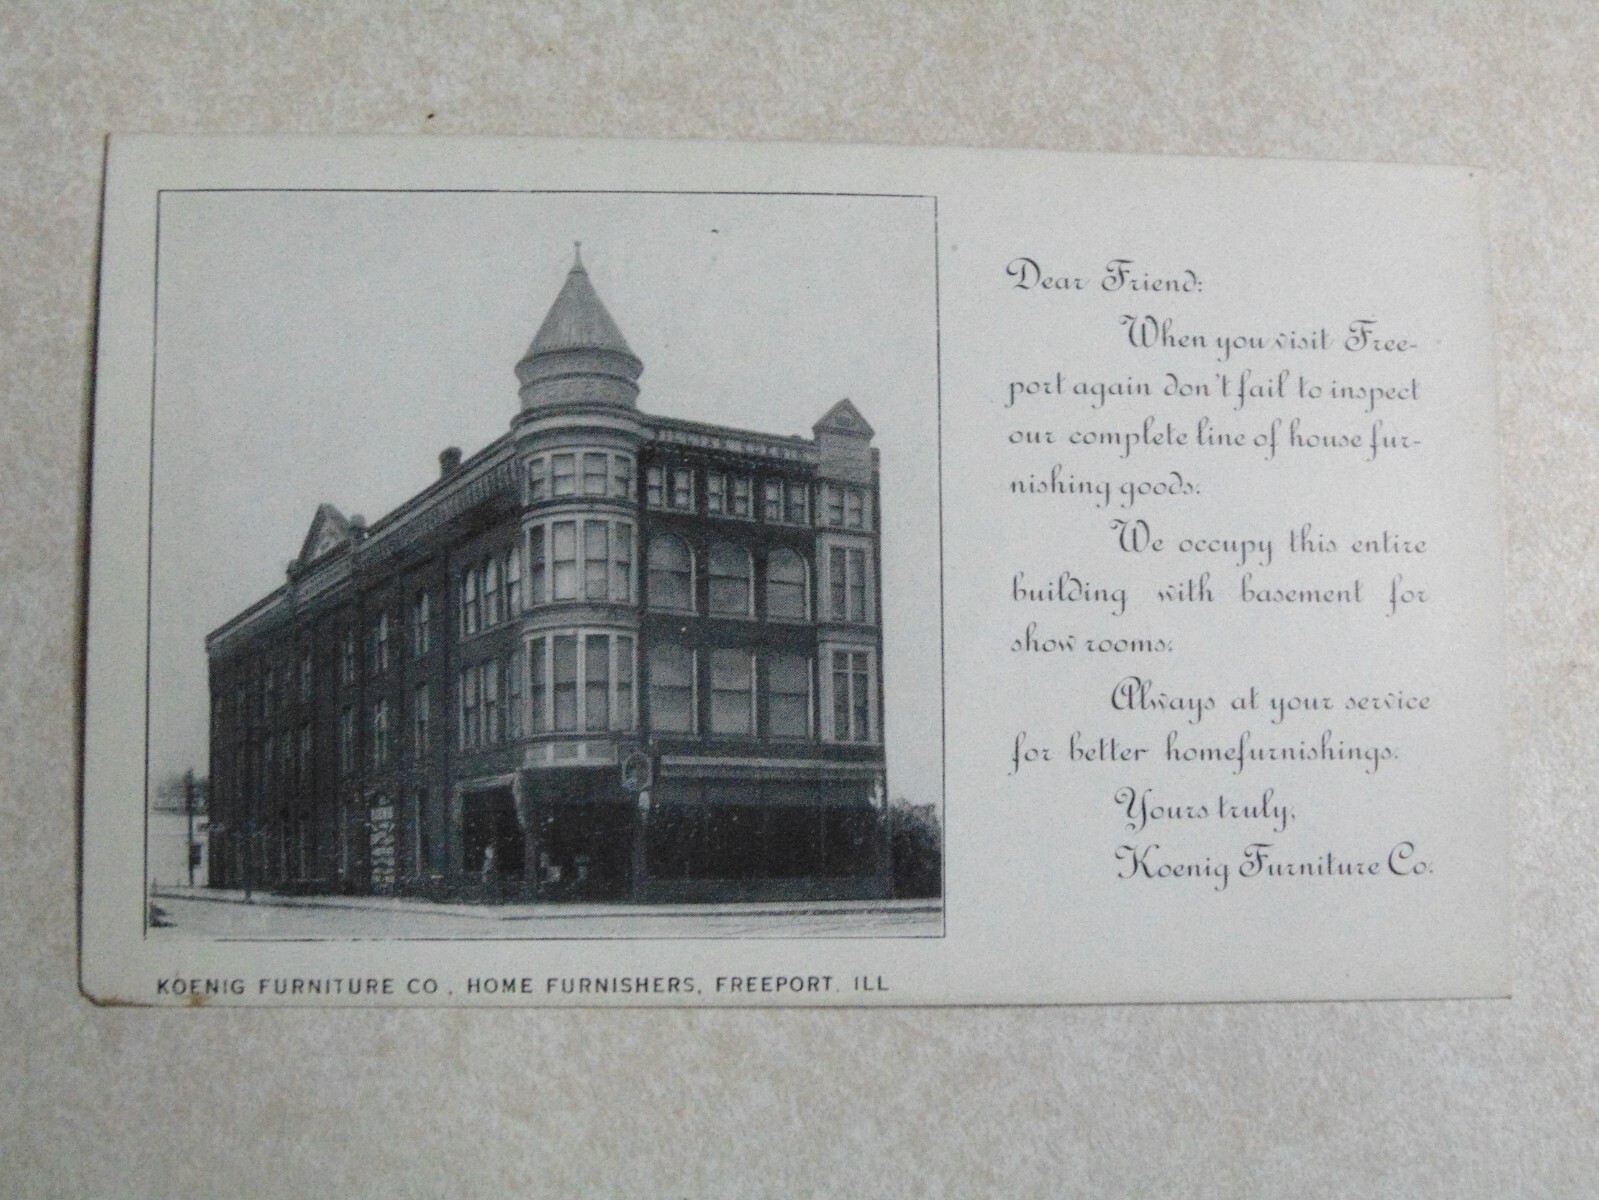 Dear Friend:
When you visit Free-
port again don't fail to inspect
our complete line of house fur-
nishing goods.
We occupy this entire
building with basement for
show rooms.
Always at your service
for better homefurnishings.
Yours truly,
Koenig Furniture Co.
KOENIG FURNITURE CO., HOME FURNISHERS, FREEPORT. ILL